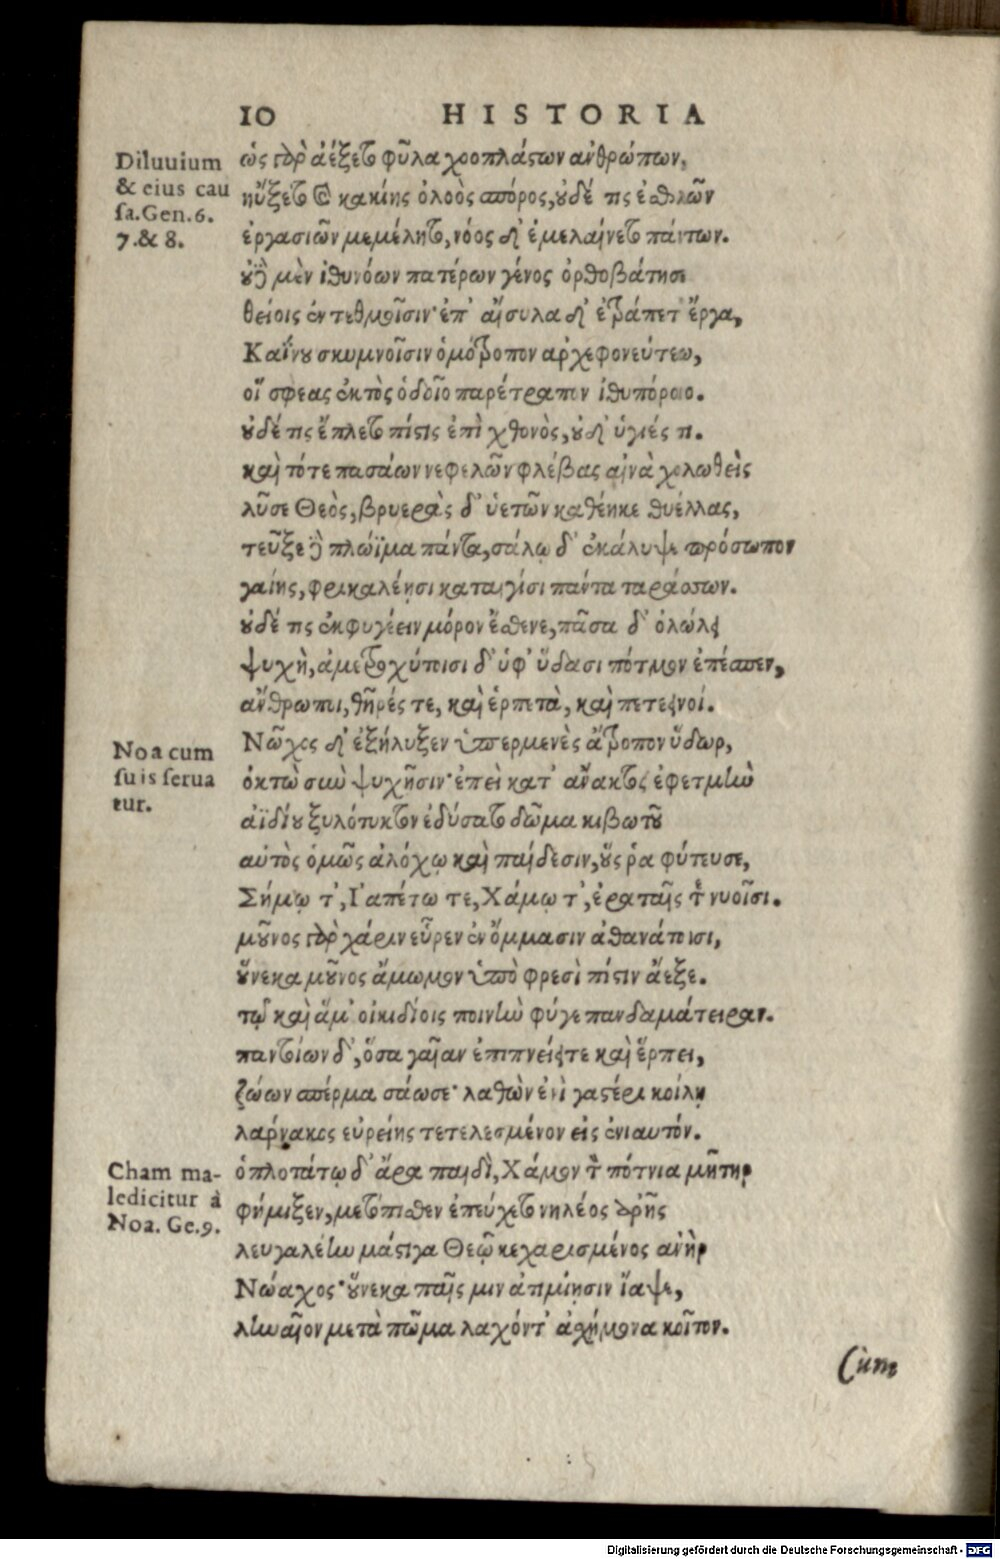 10 HISTORIA
Diluuium
& eius cau
sa. Gen. 6.
7. & 8.
ὡς γὰρ ἀέξετο φῦλα χοοπλάστων ἀνθρώπων,
ηὔξετο καὶ κακίης ὀλοὸς σπόρος, οὐδέ τις ἐσθλῶν
ἐργασιῶν μεμέλητο, νόος δ' ἐμελαίνετο πάντων.
οὐδὲ μὲν ἰθυνόων πατέρων γένος ὀρθοβάτησε
θείοις ἐν τεθμοῖσιν· ἐπ' αἴσυλα δ' ἐτράπετ' ἔργα,
Καΐνου σκυμνοῖσιν ὁμότροπον ἀρχεφονεύτεω,
οἵ σφεας ἐκτὸς ὁδοῖο παρέτραπον ἰθυπόροιο.
οὐδέ τις ἔπλετο πίστις ἐπὶ χθονὸς, οὐδ' ὑγιές τι.
καὶ τότε πασάων νεφελῶν φλέβας αἰνὰ χολωθεὶς
λῦσε Θεὸς, βρυερὰς δ' ὑετῶν καθέηκε θυέλλας,
τεῦξε δὲ πλώϊμα πάντα, σάλῳ δ' ἐκάλυψε πρόσωπον
γαίης, φρικαλέῃσι καταιγίσι πάντα ταράσσων.
οὐδέ τις ἐκφυγέειν μόρον ἔσθενε, πᾶσα δ' ὀλώλει
ψυχὴ, ἀμετροχύτοισι δ' ὑφ' ὕδασι πότμον ἐπέσπεν,
ἄνθρωποι, θῆρές τε, καὶ ἑρπετὰ, καὶ πετεεινοί.
Noa cum
suis serua
tur.
Νῶχος δ' ἐξήλυξεν ὑπερμενὲς ἄτροπον ὕδωρ,
ὀκτὼ σὺν ψυχῇσιν· ἐπεὶ κατ' ἄνακτος ἐφετμὴν
ἀϊδίου ξυλότυκτον ἐδύσατο δῶμα κιβωτοῦ
αὐτὸς ὁμῶς ἀλόχῳ καὶ παίδεσιν, οὕς ῥα φύτευσε,
Σήμῳ τ', Ἰαπέτῳ τε, Χάμῳ τ', ἐραταῖς τε νυοῖσι.
μοῦνος γὰρ χάριν εὗρεν ἐν ὄμμασιν ἀθανάτοισι,
οὕνεκα μοῦνος ἄμωμον ὑπὸ φρεσὶ πίστιν ἄεξε.
τῷ καὶ ἅμ' οἰκιδίοις ποινὴν φύγε πανδαμάτειραν.
παντοίων δ', ὅσα γαῖαν ἐπιπνείει τε καὶ ἕρπει,
ζώων σπέρμα σάωσε· λαθὼν ἐνὶ γαστέρι κοίλῃ
λαρνακος εὐρείης τετελεσμένον εἰς ἐνιαυτόν.
Cham ma-
ledicitur à
Noa. Ge. 9.
ὁπλοτάτῳ δ' ἄρα παιδὶ, Χάμον τὸν πότνια μήτηρ
φήμιξεν, μετόπισθεν ἐπεύχετο νηλέος ἀρῆς
λευγαλέην μάστιγα Θεῷ κεχαρισμένος ἀνὴρ
Νώαχος· οὕνεκα παῖς μιν ἀτιμίῃσιν ἴαψε,
ληναῖον μετὰ πῶμα λαχόντ' ἀσχήμονα κοῖτον.
Cùm
Digitalisierung gefördert durch die Deutsche Forschungsgemeinschaft - DFG